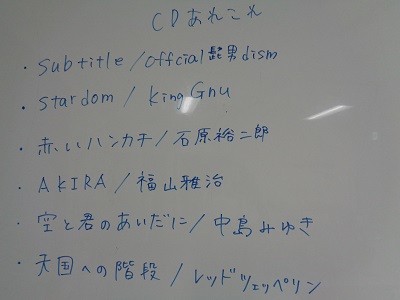 CDあれこれ
・subtitle/official髭男dism
・stardom/King Gnu
・赤いハンカチ/石原裕二郎
・AKIRA/福山雅治
・空と君のあいだに/中島みゆき
・天国への階段/レッドツェッペリン